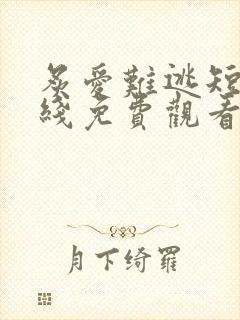 炙愛難逃短
綫免費觀看
月下綺羅